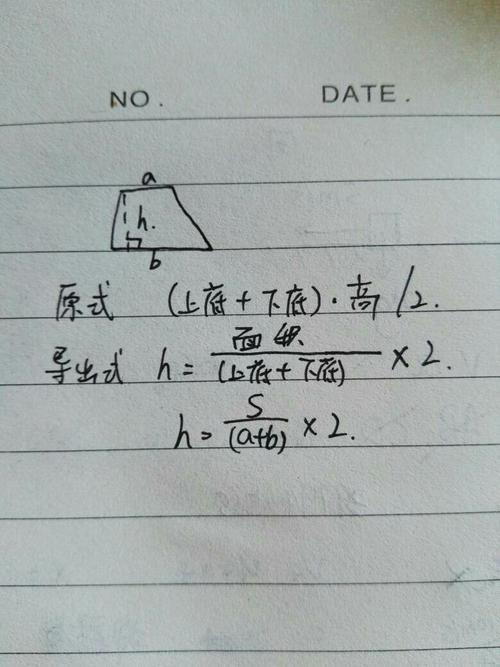 NO. DATE.
a
h.
b
原式 (上底+下底)·高/2.
导出式 h=面积/(上底+下底)×2.
h=S/(a+b)×2.